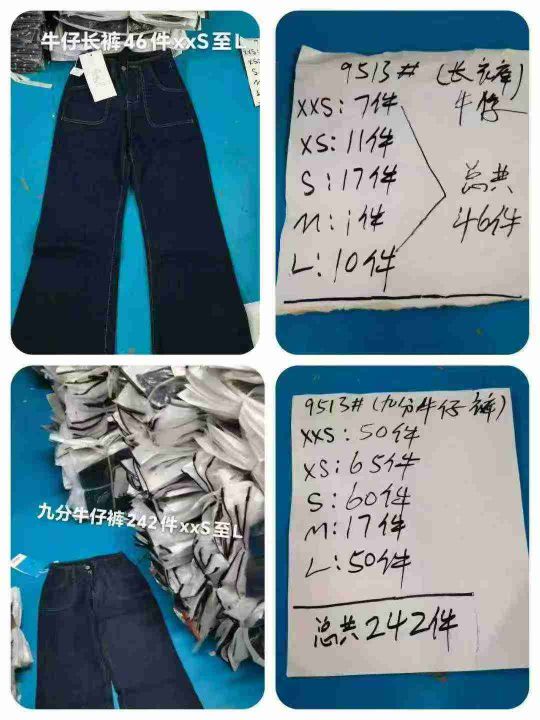 牛仔长裤46件xxS至L
9513# (长裤)
牛仔
XXS:7件
XS:11件
S:17件
M:1件
L:10件
总共
46件
九分牛仔裤242件xxS至L
9513#(九分牛仔裤)
XXS:50件
XS:65件
S:60件
M:17件
L:50件
总共242件